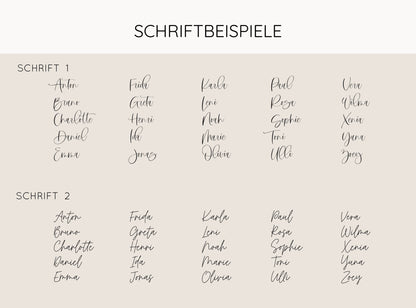 SCHRIFTBEISPIELE
SCHRIFT 1
Anton Frida Karla Paul Vera
Bruno Greta Leni Rosa Wilma
Charlotte Henri Noah Sophie Xenia
Daniel Ida Marie Toni Yuna
Emma Jonas Olivia Ulli Zoey
SCHRIFT 2
Anton Frida Karla Paul Vera
Bruno Greta Leni Rosa Wilma
Charlotte Henri Noah Sophie Xenia
Daniel Ida Marie Toni Yuna
Emma Jonas Olivia Ulli Zoey